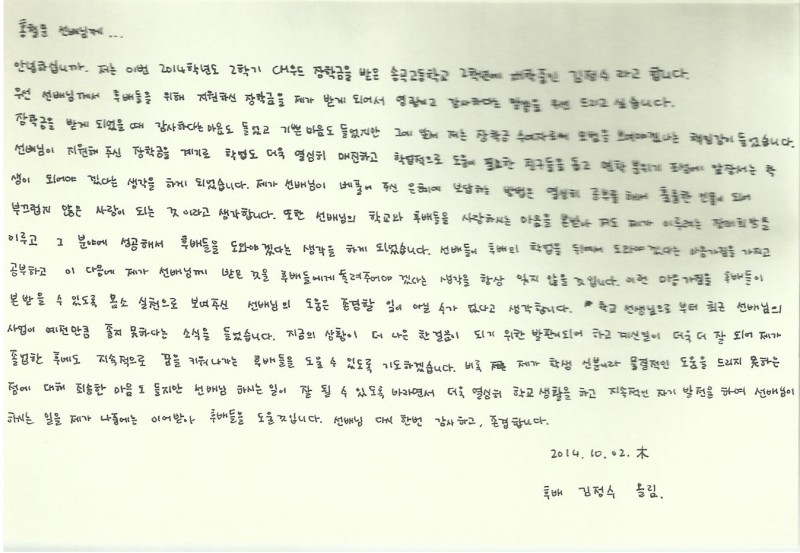 홍철운 선배님께...
안녕하십니까. 저는 이번 2014학년도 2학기 CH우드 장학금을 받은 송곡고등학교 2학년에 재학중인 김정수 라고 합니다.
우선 선배님께서 후배들을 위해 지원하신 장학금을 제가 받게 되어서 영광이고 감사하다는 말씀을 우선 드리고 싶습니다.
장학금을 받게 되었을 때 감사하다는 마음도 들었고 기쁜 마음도 들었지만 그에 저는 장학금 수여자로써 모범을 보여야겠다는 책임감이 들었습니다.
선배님이 지원해 주신 장학금을 계기로 학업도 더욱 열심히 매진하고 학업적으로 도움이 필요한 친구들을 돕고 면학 분위기 조성에 앞장서는 학
생이 되어야 겠다는 생각을 하게 되었습니다. 제가 선배님이 베풀어 주신 은혜에 보답하는 방법은 열심히 공부를 해서 훌륭한 인물이 되어
부끄럽지 않은 사람이 되는 것 이라고 생각합니다. 또한 선배님의 학교와 후배들을 사랑하시는 마음을 본받아 저도 제가 이루려는 장래희망을
이루고 그 분야에 성공해서 후배들을 도와야겠다는 생각을 하게 되었습니다. 선배들이 후배의 학업을 뒤에서 도와야겠다는 마음가짐을 가지고
공부하고 이 다음에 제가 선배님께 받은 것을 후배들에게 돌려주어야 겠다는 생각을 항상 잊지 않을 것입니다. 이런 마음가짐을 후배들이
본받을 수 있도록 몸소 실천으로 보여주신 선배님의 도움은 존경할 일이 아닐 수가 없다고 생각합니다. 학교 선생님으로 부터 최근 선배님의
사업이 예전만큼 좋지 못하다는 소식을 들었습니다. 지금의 상황이 더 나은 한걸음이 되기 위한 발판이되어 하고 계신일이 더욱 더 잘 되어 제가
졸업한 후에도 지속적으로 꿈을 키워나가는 후배들을 도울 수 있도록 기도하겠습니다. 비록 제가 학생 신분이라 물질적인 도움을 드리지 못하는
점에 대해 죄송한 마음도 들지만 선배님 하시는 일이 잘 될 수 있도록 바라면서 더욱 열심히 학교생활을 하고 지속적인 자기 발전을 하여 선배님이
하시는 일을 제가 나중에는 이어받아 후배들을 도울것입니다. 선배님 다시 한번 감사하고, 존경합니다.
2014. 10. 02. 木
후배 김정수 올림.